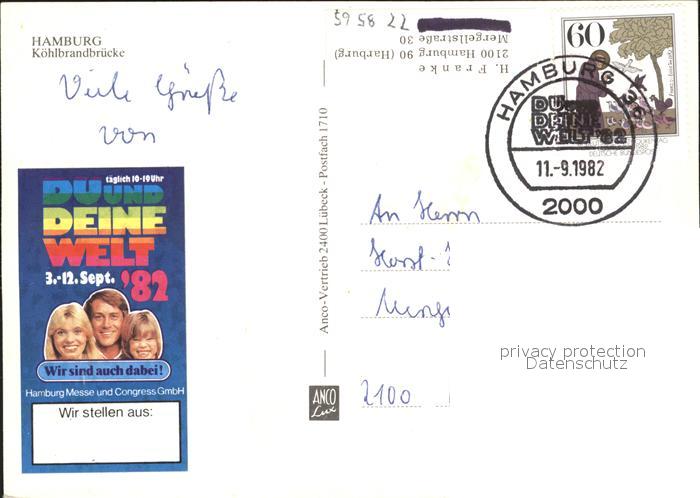 HAMBURG
Köhlbrandbrücke
Viele Grüße
von
täglich 10-19 Uhr
DU UND
DEINE
WELT
3.-12. Sept. '82
Wir sind auch dabei!
Hamburg Messe und Congress GmbH
Wir stellen aus:
Anco-Vertrieb 2400 Lübeck - Postfach 1710
ANCO
Lux
77 85 65
H. Franke
Mergellstraße 30
2100 Hamburg 90 (Harburg)
60
DEUTSCHE BUNDESPOST
HAMBURG 36
DU UND
DEINE
WELT '82
11.-9.1982
2000
An Herrn
Horst-
2100
privacy protection
Datenschutz